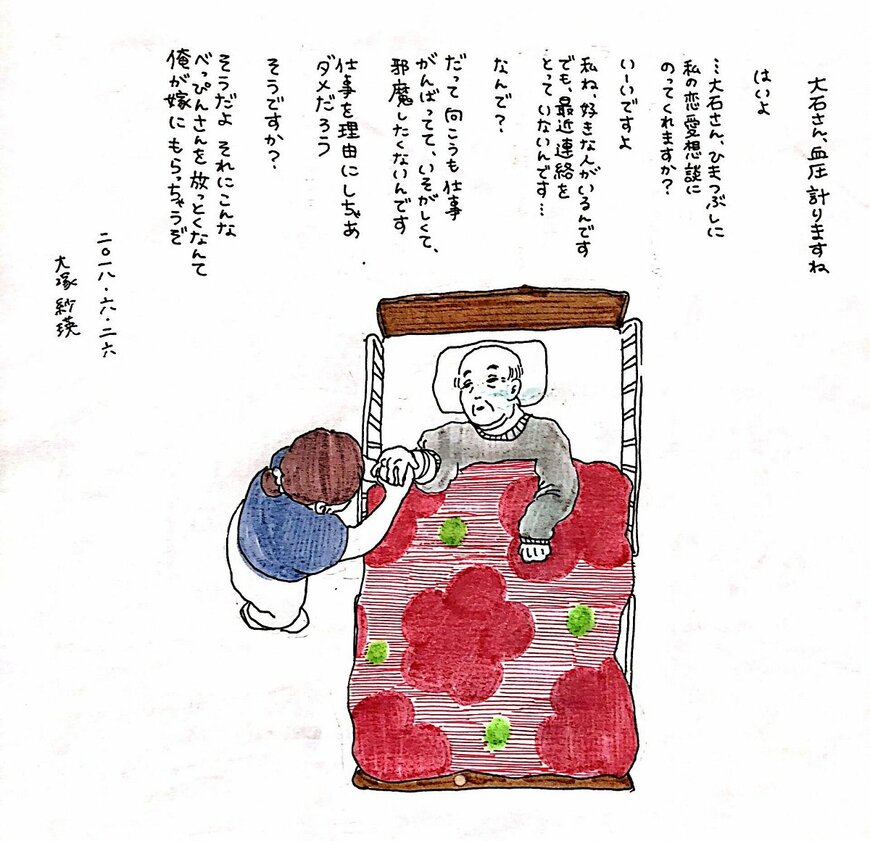 大石さん、血圧計りますね
はいよ
…大石さん、ひまつぶしに
私の恋愛想談に
のってくれますか？
いーいですよ
私ね、好きな人がいるんです
でも、最近連絡を
とっていないんです…
なんで？
だって向こうも仕事
がんばってて、いそがしくて、
邪魔したくないんです
仕事を理由にしちゃあ
ダメだろう
そうですか？
そうだよ それにこんな
べっぴんさんを放っとくなんて
俺が嫁にもらっちゃうぞ
二〇一八・六・二六
大塚紗瑛